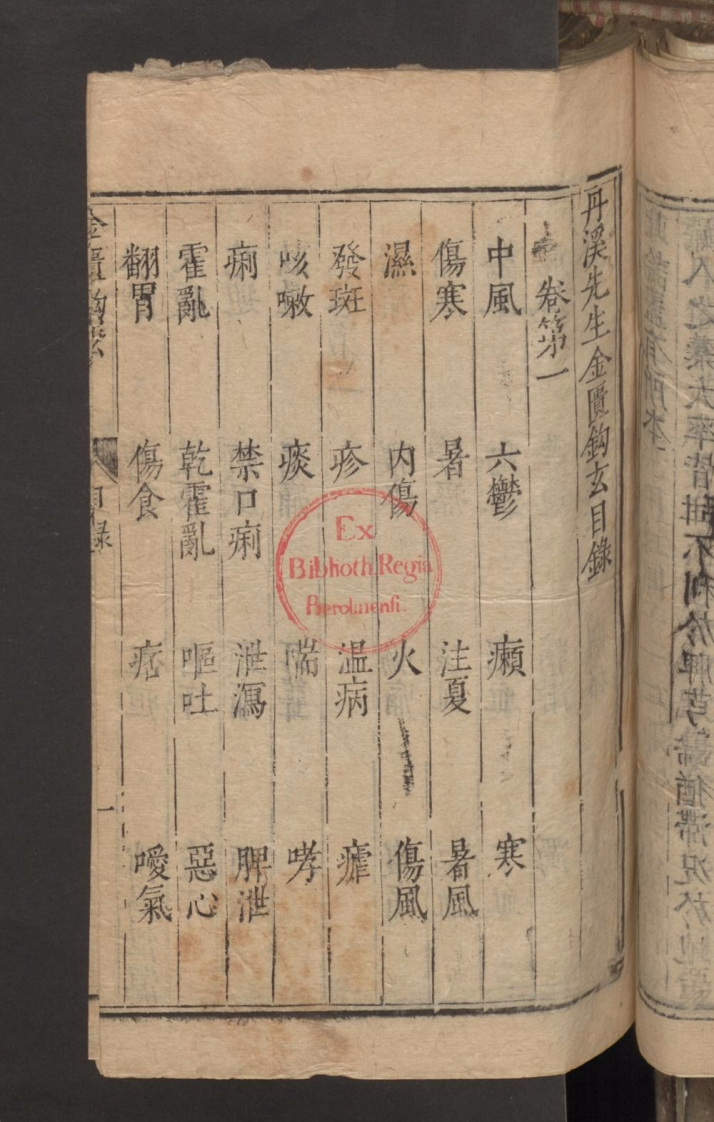 丹溪先生金匱鈎玄目錄
卷第一
中風 六鬱 癩 寒
傷寒 暑 注夏 暑風
濕 内傷 火 傷風
發斑 疹 温病 瘧
咳嗽 痰 喘 哮
痢 禁口痢 泄瀉 脾泄
霍亂 乾霍亂 嘔吐 惡心
翻胃 傷食 噯氣
金匱鈎玄 目録 一
Ex
Biblioth. Regia
Berolinensi.